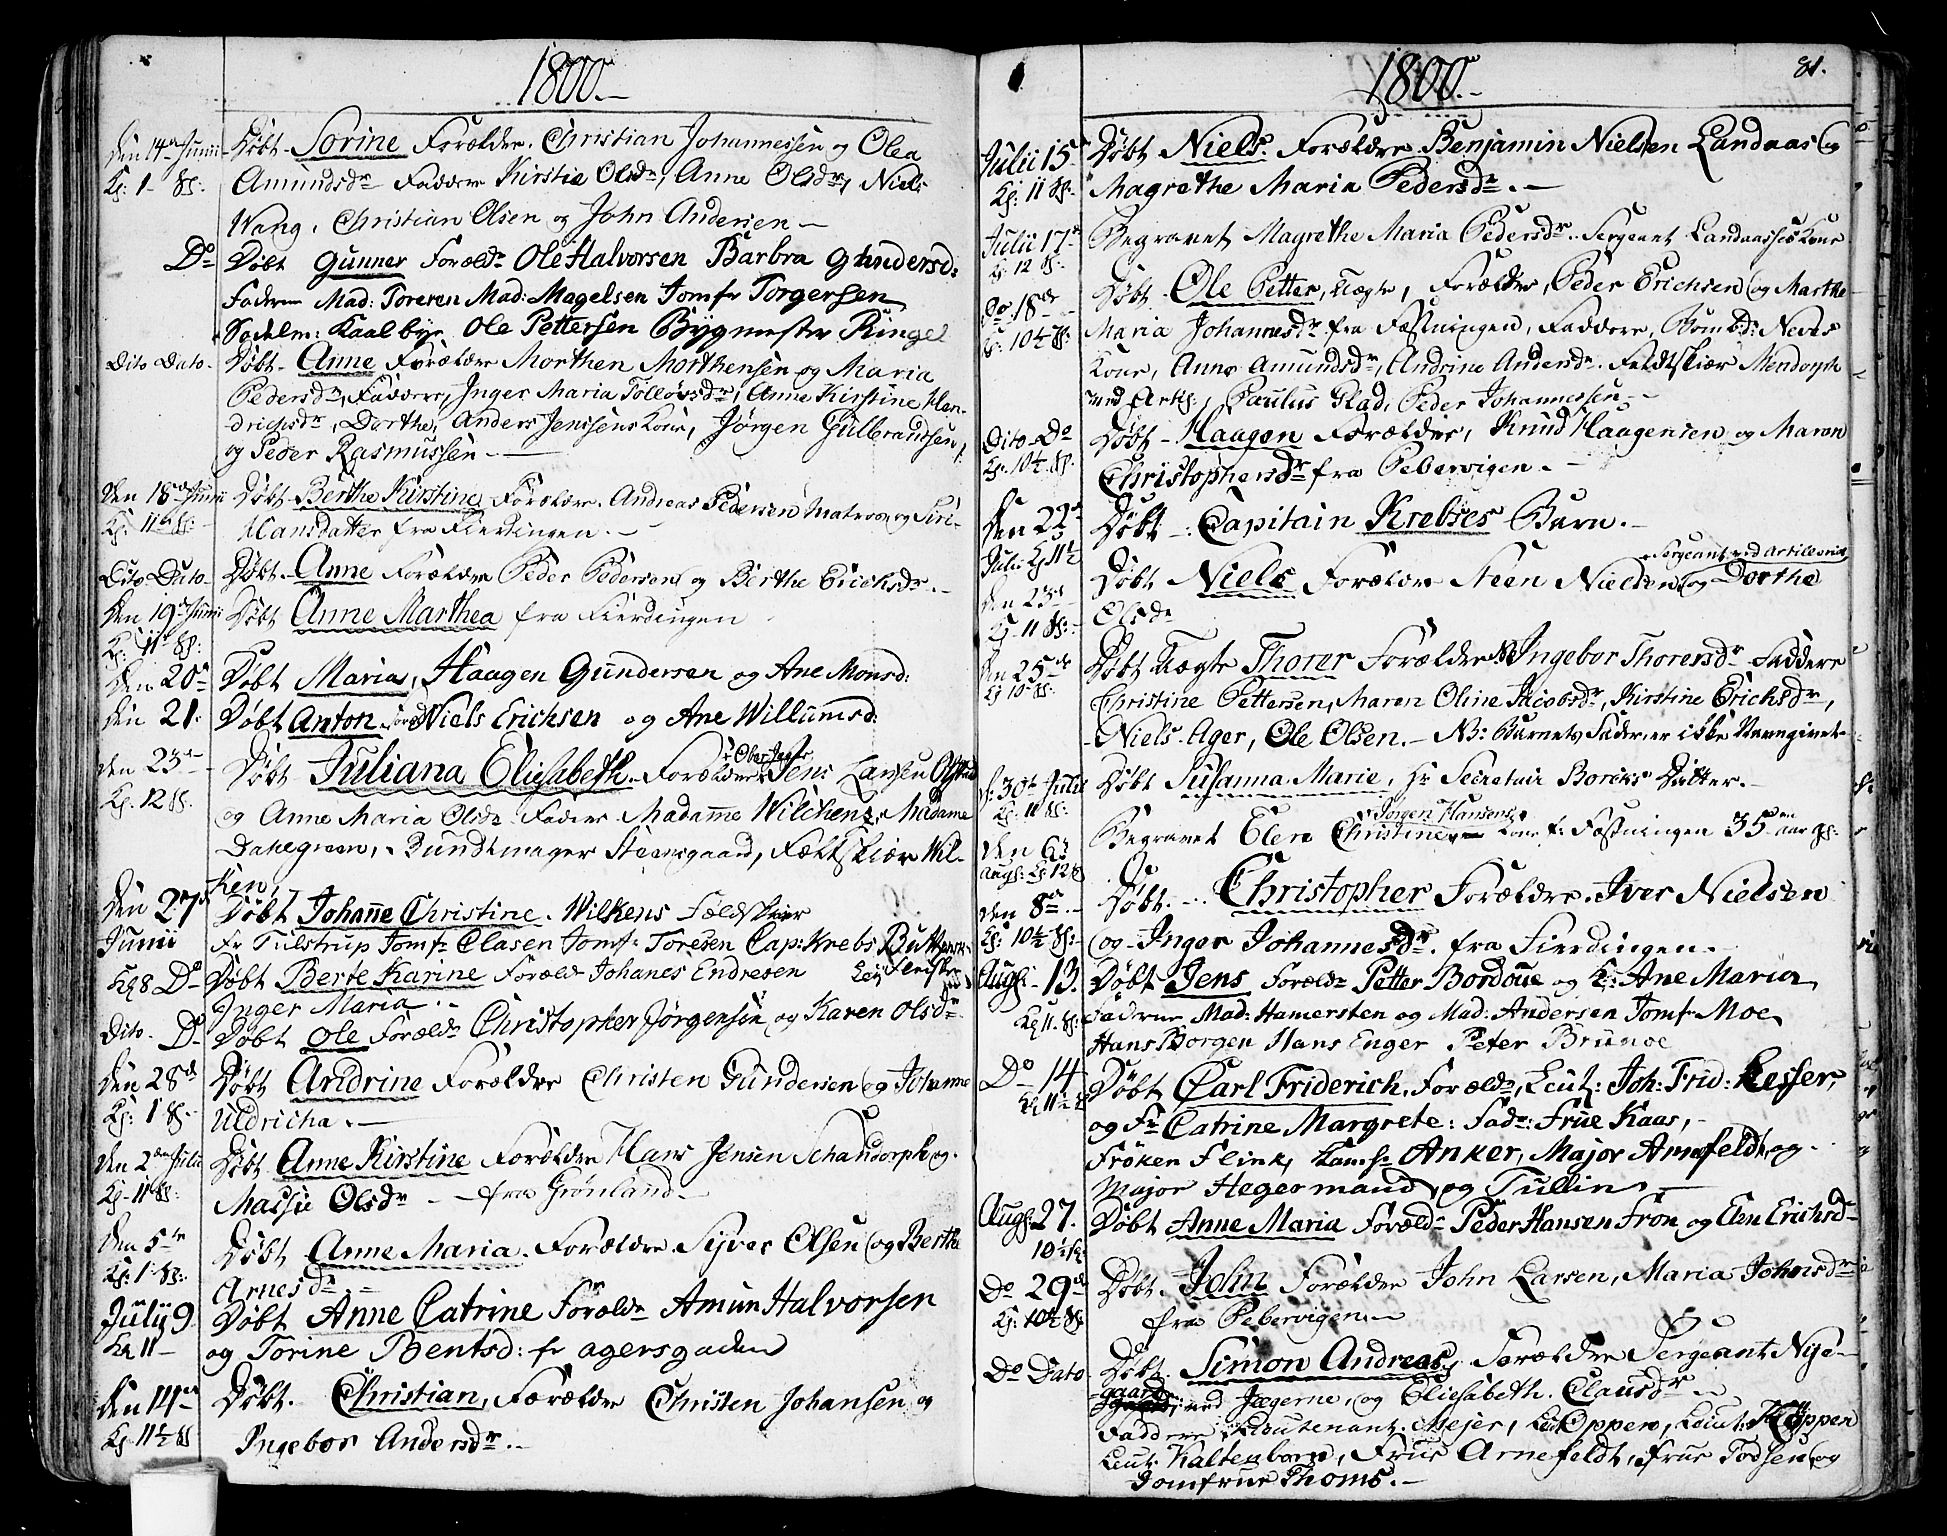 1800.
den 14de Junii Døbt Sorine Forældre. Christian Johannessen og Olea
Kl: 1 Amundsdr Faddere Kirstie Olsdr, Anne Olsdr, Niels
Wang, Christian Olsen og John Andersen
Do Døbt Gunner Forældr Ole Halvorsen Barbra Gundersd:
Faderne Mad: Toresen Mad: Magelsen Jomfr Torgersen
Sadelm: Kaalbye Ole Pettersen Bygmester Ringel
Dito Dato. Døbt. Anne Forældre Morthen Morthensen og Maria
Pedersdr, Faddere, Inger Maria Tolløvsdr, Anne Kirstine Hen-
drichsdr, Dorthe, Anders Jenssens Kone, Jørgen Gulbrandsen,
og Peder Rasmussen
den 18de Junii Døbt Berthe Kirstine Forældre. Andreas Pedersen Matros og Siri
Kl: 11 Hansdatter fra Fierdingen.
Dito Dato Døbt. Anne Forældre Peder Pedersen og Berthe Erichsdr.
den 19de Junii Døbt Anne Marthea fra Fierdingen
Kl: 11
den 20de Døbt Maria, Haagen Gundersen og Ane Monsd:
den 21. Døbt Anton Foræld Niels Erichsen og Ane Willumsd:
den 23de Døbt Juliana Elisabeth. Forældre Oberjeger Jens Larsen
Kl. 12 og Anne Maria Olsdr Fadere Madame Wilchens, Madame
Dahlegreen, Bundtmager Steensgaard, Feltskiær Wil-
ken,
den 27de Døbt Johanne Christine. Wilkens Fældskier
Junii Fr Tulstrup Jomfr Clasen Jomfr Toresen Cap: Krebs
Kl 8 Do Døbt Berte Karine Foræld Johanes Endresen
Inger Maria.
Dito. Do Døbt Ole Forældr Christopher Jørgensen og Karen Olsdr
den 28de Døbt Andrine Forældre Christen Gundersen og Johanne
Kl: 1 Uldricha.
den 2den Julii Døbt Anne Kirstine Forældre Hans Jensen Schandorph og
Kl. 11 Massie Olsdr fra Grønland
den 5te Døbt Anne Maria. Forældre. Syver Olsen og Berthe
Kl: 1 Arnesdr
July 9 Døbt Anne Catrine Forældr Amun Halvorsen
Kl 11 og Torine Bentsd: fr agersgaden
den 14de Døbt. Christian, Forældre Christen Johansen og
Kl 11½ Ingebor Andersdr.
1800. 81.
Julii 15de Døbt Niels. Forældre Benjamin Nielsen Landaas og
Kl: 11 Magrethe Maria Pedersdr.
Julii 17de Begravet Magrethe Maria Pedersdr. Sergeant Landaasses Kone
Kl: 12
Do 18de Døbt. Ole Petter, uægte, Forældre, Peder Erichsen og Marthe
Kl: 10½ Maria Johannesdr fra Fæstningen, Faddere,
Kone, Anne Amundsdr, Andrine Andersdr. Feldtskiær Mendorph
ved Artl:, Paulus Glad, Peder Johannessen
Dito Do Døbt Haagen Forældre, Knud Haagensen og Maren
Kl. 10½ Christophersdr fra Pebervigen.
Den 22de Døbt. Capitain Krebses Barn.
Juli Kl 11½
Den 23de Døbt Niels Forældre Steen Nielsen Sergeant ved Artileriet og Dorthe
Kl 11 Olsdr
Den 25de Døbt uægte Thorer Forældre NB Ingebor Thorersdr Faddere
Kl 10 Christine Pettersen, Maren Oline Jacobsdr, Kirstine Erichsdr,
Niels Ager, Ole Olsen. NB: Barnets Fader, er ikke Navngivet
30te Julii Døbt Susanna Marie, Hr Secretair Borchs Datter.
Kl: 11
den 6te Begravet Elen Christine Jørgen Hansens Kone f: Fæstningen 35 aar gl:
Augs: Kl 12
den 8de Døbt. Christopher Forældre. Iver Nielsen
Kl: 10½ og Inger Johannesdr. fra Fierdingen.
Augs. 13. Døbt Jens Forældr Petter Bordoue og K: Ane Maria
Kl 11. Fadrene Mad: Hamersten og Mad: Andersen Jomfr Moe
Hans Borgen Hans Enger Peter Brunoe
Do 14 Døbt Carl Friderich. Forældr, Leut: Joh: Frid: Lesser,
Kl 11½ og Fr Catrine Margrete: Fadr: Frue Kaas,
Frøken Flink, Jomfr Anker, Major Arnefeldt og
Major Hegermand, og Tullin.
Augs 27. Døbt Anne Maria Forældr Peder Hansen Fron og Elen Erichsd
10½ Kl:
Do 29de Døbt. John Forældre John Larsen, Maria Johnsdr
Kl: 10½ fra Pebervigen
Do Dato Døbt. Simon Andreas, Forældre Sergeant Nye-
gaard ved Jægerne, og Eliesabeth Clausdr
Faddere, Lieutenant. Mejer, Leut Oppen, Leuit: Køppen
Leut: Kaltenborn, Frue Arnefeldt, Frue Todsen, og
Jomfrue Thoms.